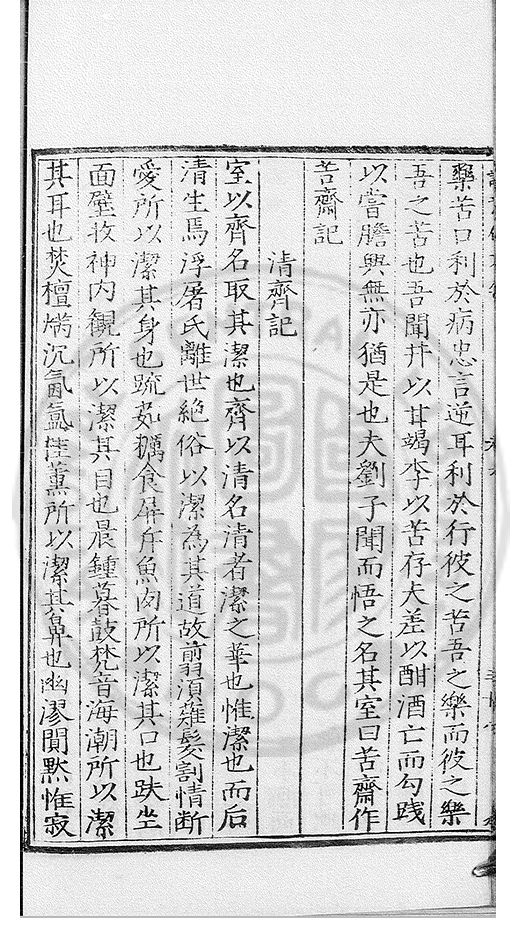 藥苦口利於病忠言逆耳利於行彼之苦吾之樂而彼之樂
吾之苦也吾聞井以甘竭李以苦存夫差以酣酒亡而勾踐
以嘗膽興無亦猶是也夫劉子聞而悟之名其室曰苦齋作
苦齋記
清齊記
室以齊名取其潔也齊以清名清者潔之華也惟潔也而后
清生焉浮屠氏離世絶俗以潔為其道故翦須薙髮割情断
愛所以潔其身也䟽茹糲食屏斥魚肉所以潔其口也趺坐
面壁收神内觀所以潔其目也晨鍾暮鼓梵音海潮所以潔
其耳也焚檀爇沉氤氲桂薰所以潔其鼻也幽漻閴默惟寂